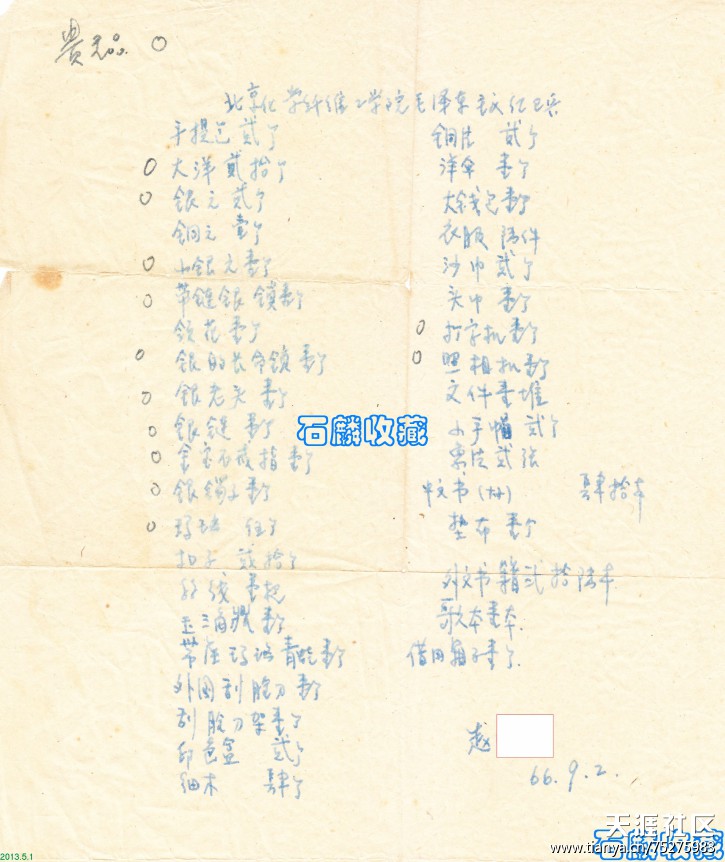 贵重品 〇
北京化学纤维工学院毛泽东主义红卫兵
手提包 贰个
大洋 贰拾个
銀元 贰个
铜元 壹个
小銀元 壹个
带链銀锁壹个
领花壹个
銀的长命锁壹个
銀老头 壹个
銀链 壹个
金宝石戒指壹个
銀镯子壹个
玛瑙 伍个
扣子 贰拾个
壹把
玉三角腿壹个
带座玛瑙青蛙壹个
外国刮脸刀壹个
刮脸刀架壹个
印色盒 贰个
细木 肆个
铜片 贰个
洋伞 壹个
大钱包壹个
衣服 陆件
沙巾 贰个
头巾 壹个
打字机壹个
照相机壹个
文件壹堆
小手帽 贰个
票片贰张
中文书(册) 肆拾本
垫布 壹个
外文书籍贰拾陆本
歌本壹本
借用箱子壹个
赵
66.9.2.
石麟收藏
天涯社区
www.tianya.cn/75275983
石麟收藏
2013.5.1